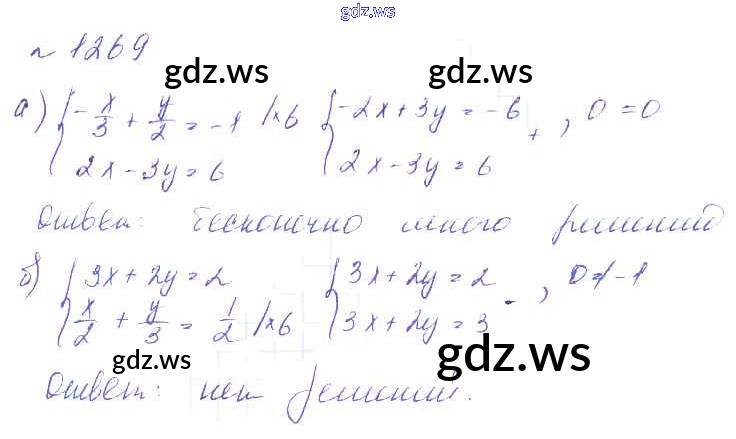 gdz.ws
№ 1269
gdz.ws
gdz.ws
а) { -x/3 + y/2 = -1 |×6 { -2x + 3y = -6 + , 0 = 0
2x - 3y = 6 2x - 3y = 6
Ответ: бесконечно много решений
б) { 3x + 2y = 2 { 3x + 2y = 2 - , 0 ≠ -1
x/2 + y/3 = 1/2 |×6 3x + 2y = 3
gdz.ws
gdz.ws
Ответ: нет решений.